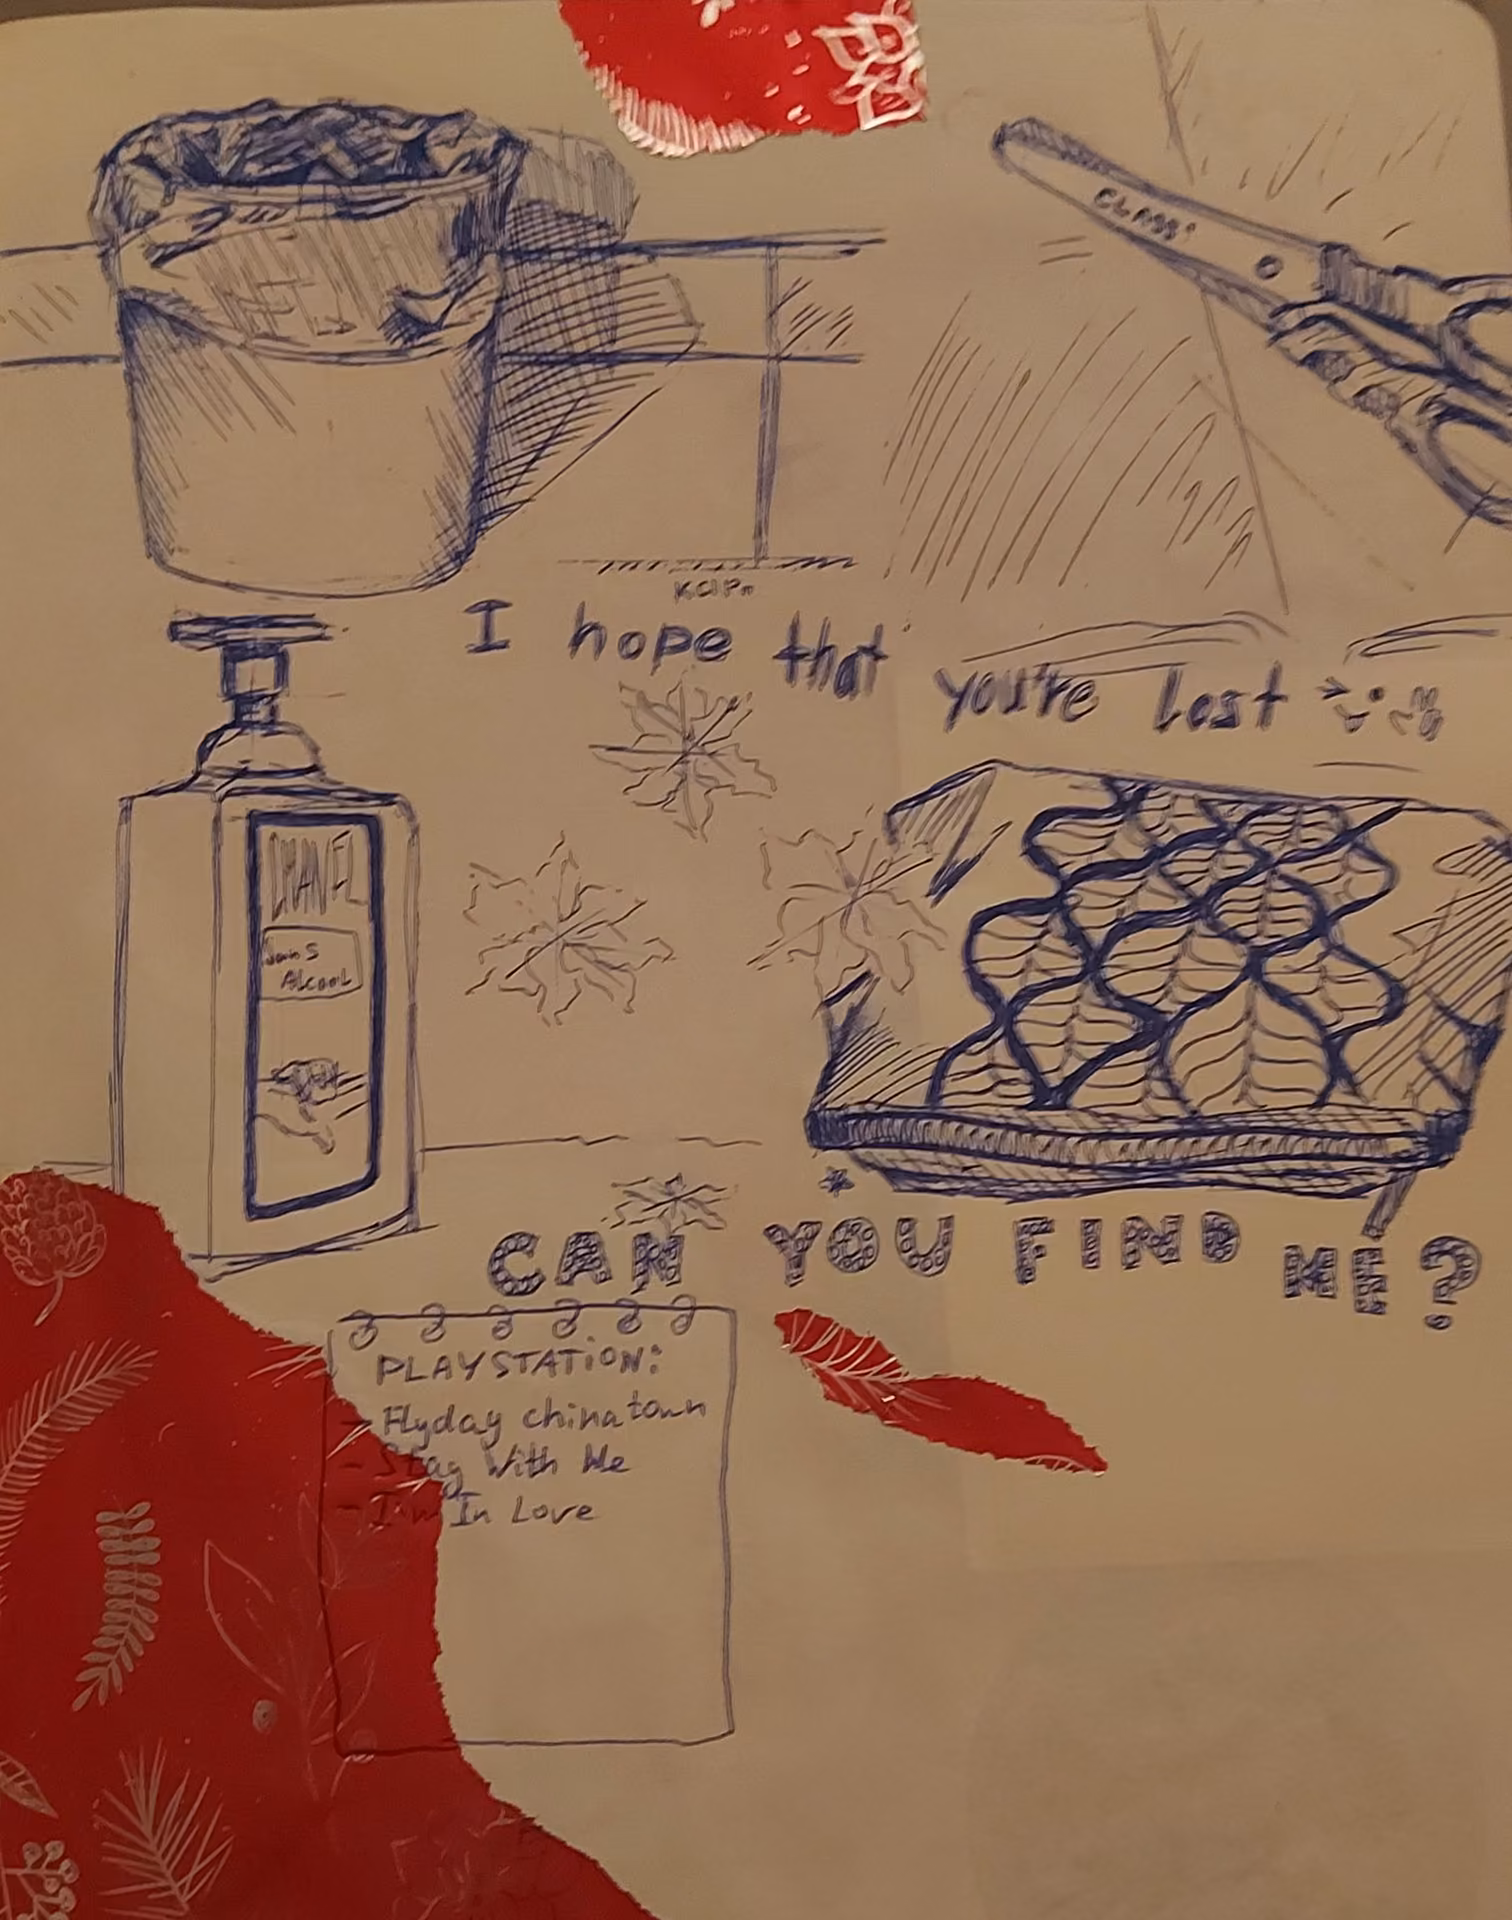 CLASSI
I hope that you're lost
CHANEL
Sans
Alcool
CAN YOU FIND ME?
PLAYSTATiON:
- Flyday chinatown
- Stay With Me
- I'm In Love